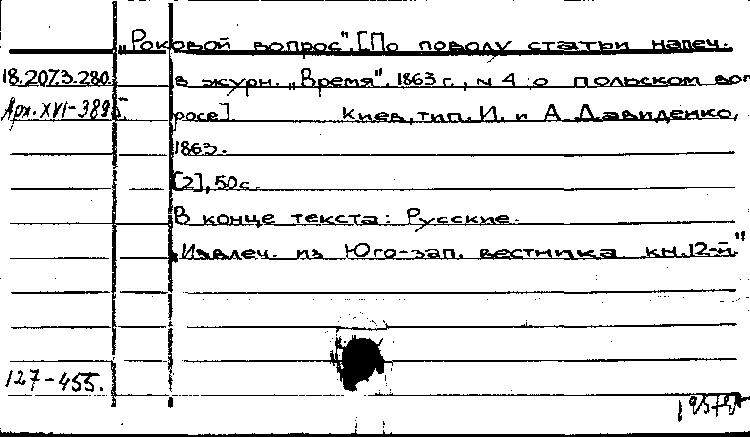 „Роковой вопрос". [По поводу статьи напеч.
18.207.3.280. в журн. „Время". 1863 г., № 4 о польском воп-
Арх. XVI-389 росе]. Киев, тип. И. и А Давиденко,
1863.
[2], 50 с.
В конце текста: Русские.
„Извлеч. из Юго-зап. вестника кн. 12-й."
127-455.